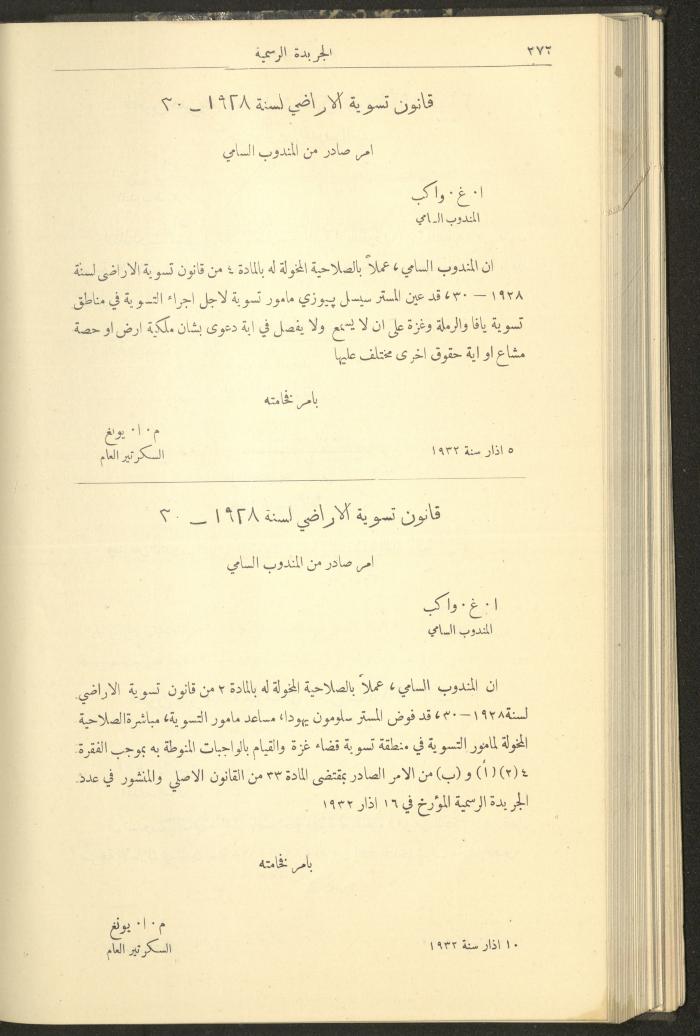 ٢٧٢
الجريدة الرسمية
قانون تسوية الاراضي لسنة ١٩٢٨ – ٣٠
امر صادر من المندوب السامي
ا٠ غ٠ واكب
المندوب السامي
ان المندوب السامي، عملاً بالصلاحية المخولة له بالمادة ٤ من قانون تسوية الاراضى لسنة
١٩٢٨ – ٣٠، قد عين المستر سيسل پيوزي مامور تسوية لاجل اجراء التسوية في مناطق
تسوية يافا والرملة وغزة على ان لا يسمع ولا يفصل في اية دعوى بشان ملكية ارض او حصة
مشاع او اية حقوق اخرى مختلف عليها
بامر فخامته
م٠ ا٠ يونغ
السكرتير العام
٥ اذار سنة ١٩٣٢
قانون تسوية الاراضي لسنة ١٩٢٨ – ٣٠
امر صادر من المندوب السامي
ا٠ غ٠ واكب
المندوب السامي
ان المندوب السامي، عملاً بالصلاحية المخولة له بالمادة ٢ من قانون تسوية الاراضي
لسنة ١٩٢٨–٣٠، قد فوض المستر سلومون يهودا، مساعد مامور التسوية، مباشرة الصلاحية
المخولة لمامور التسوية في منطقة تسوية قضاء غزة والقيام بالواجبات المنوطة به بموجب الفقرة
٤ (٢) (أ) و (ب) من الامر الصادر بمقتضى المادة ٣٣ من القانون الاصلي والمنشور في عدد
الجريدة الرسمية المؤرخ في ١٦ اذار ١٩٣٢
بامر فخامته
م٠ ا٠ يونغ
السكرتير العام
١٠ اذار سنة ١٩٣٢